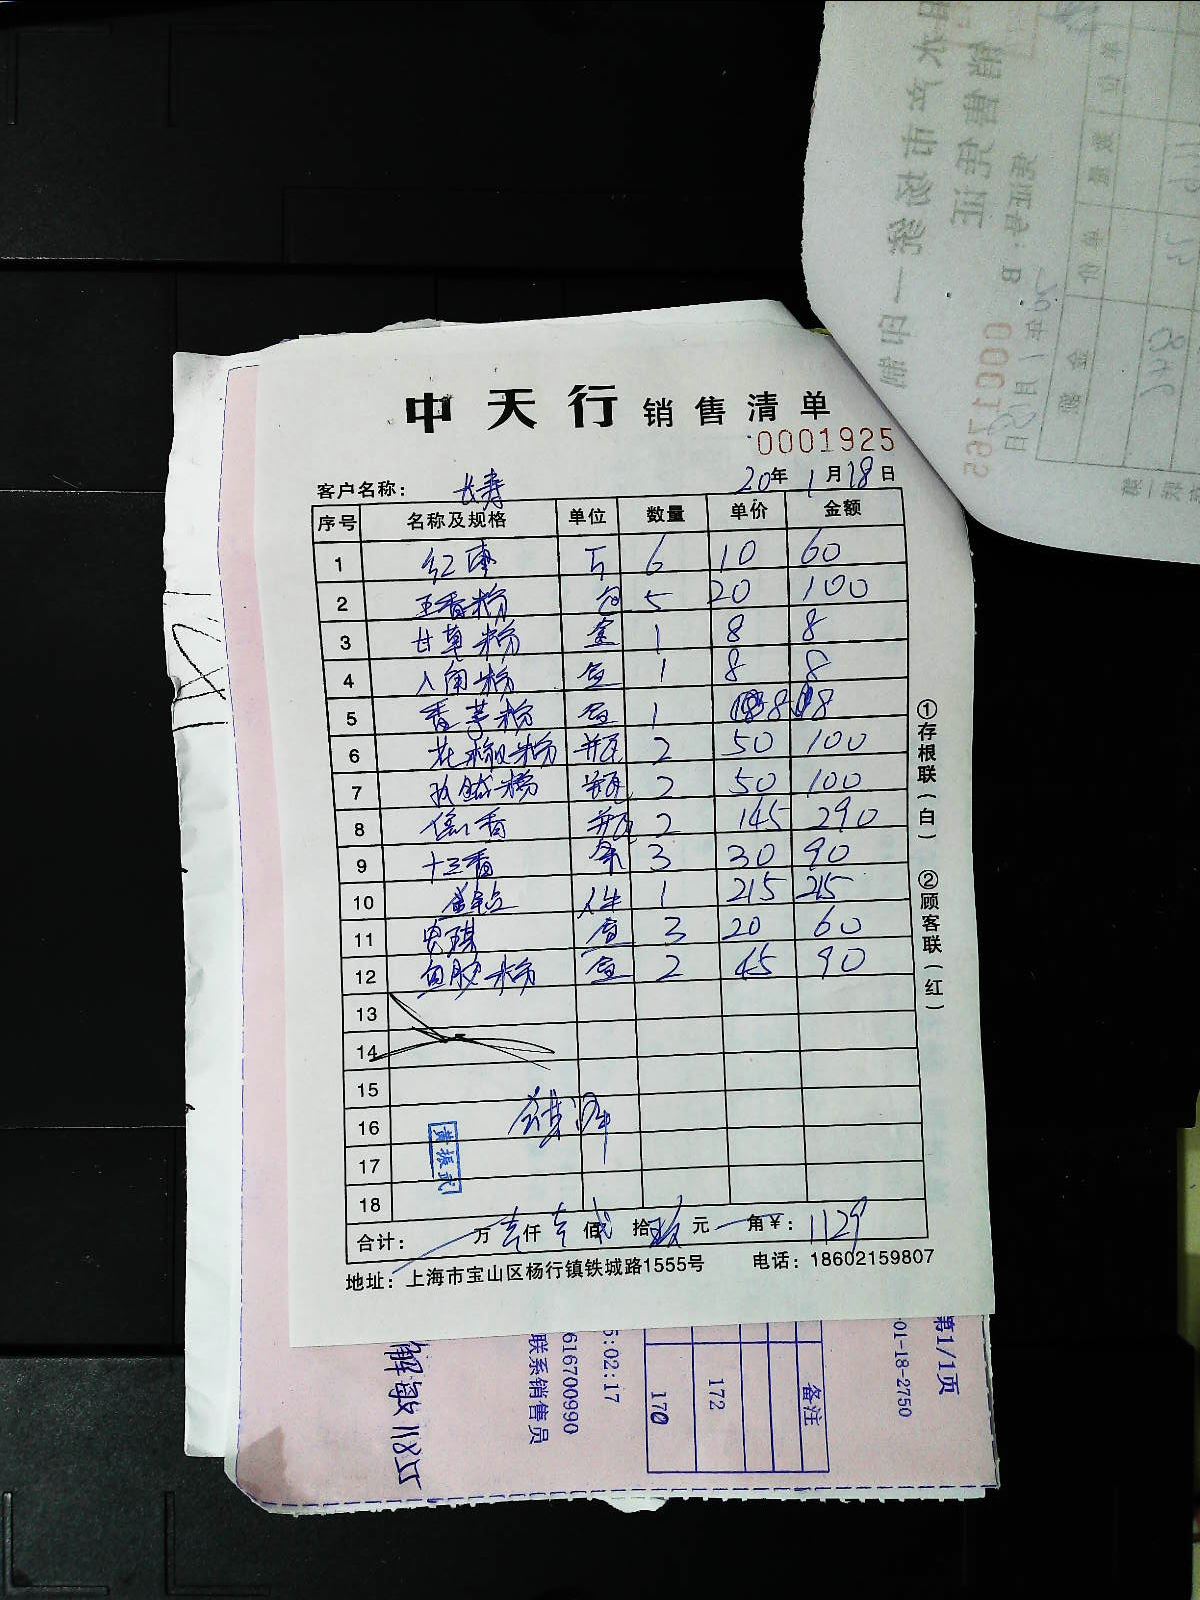 中天行 销售清单
0001925
客户名称： 长寿 20年 1月18日
序号 名称及规格 单位 数量 单价 金额
1 红枣 斤 6 10 60
2 五香粉 包 5 20 100
3 甘草粉 盒 1 8 8
4 八角粉 盒 1 8 8
5 香芋粉 盒 1 8 8
6 花椒粉 瓶 2 50 100
7 粉 瓶 2 50 100
8 香 瓶 2 145 290
9 十三香 3 30 90
10 件 1 215 215
11 盒 3 20 60
12 鱼胶粉 盒 2 45 90
13
14
15
16
17
18
黄振武
合计： 万 壹仟 壹佰 贰拾 玖元 角￥： 1129
地址：上海市宝山区杨行镇铁城路1555号 电话：18602159807
①存根联（白） ②顾客联（红）
第1/1页
01-18-2750
备注
172
170
5:02:17
616700990
联系销售员
0001265